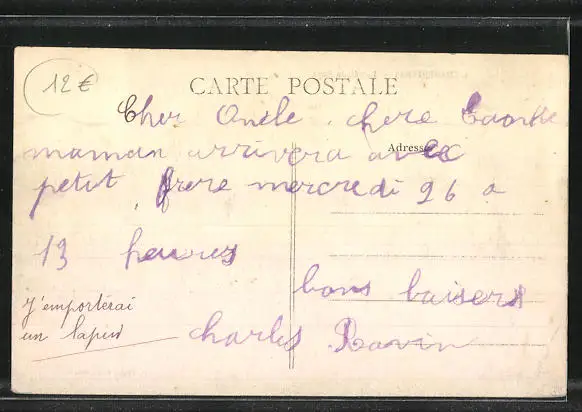 12€
CARTE POSTALE
Cher Oncle, chere tante
Adresse
maman arrivera avec
petit frere mercredi 26 a
13 heures
bons baisers
J'emporterai
un lapin
Charles Ravin